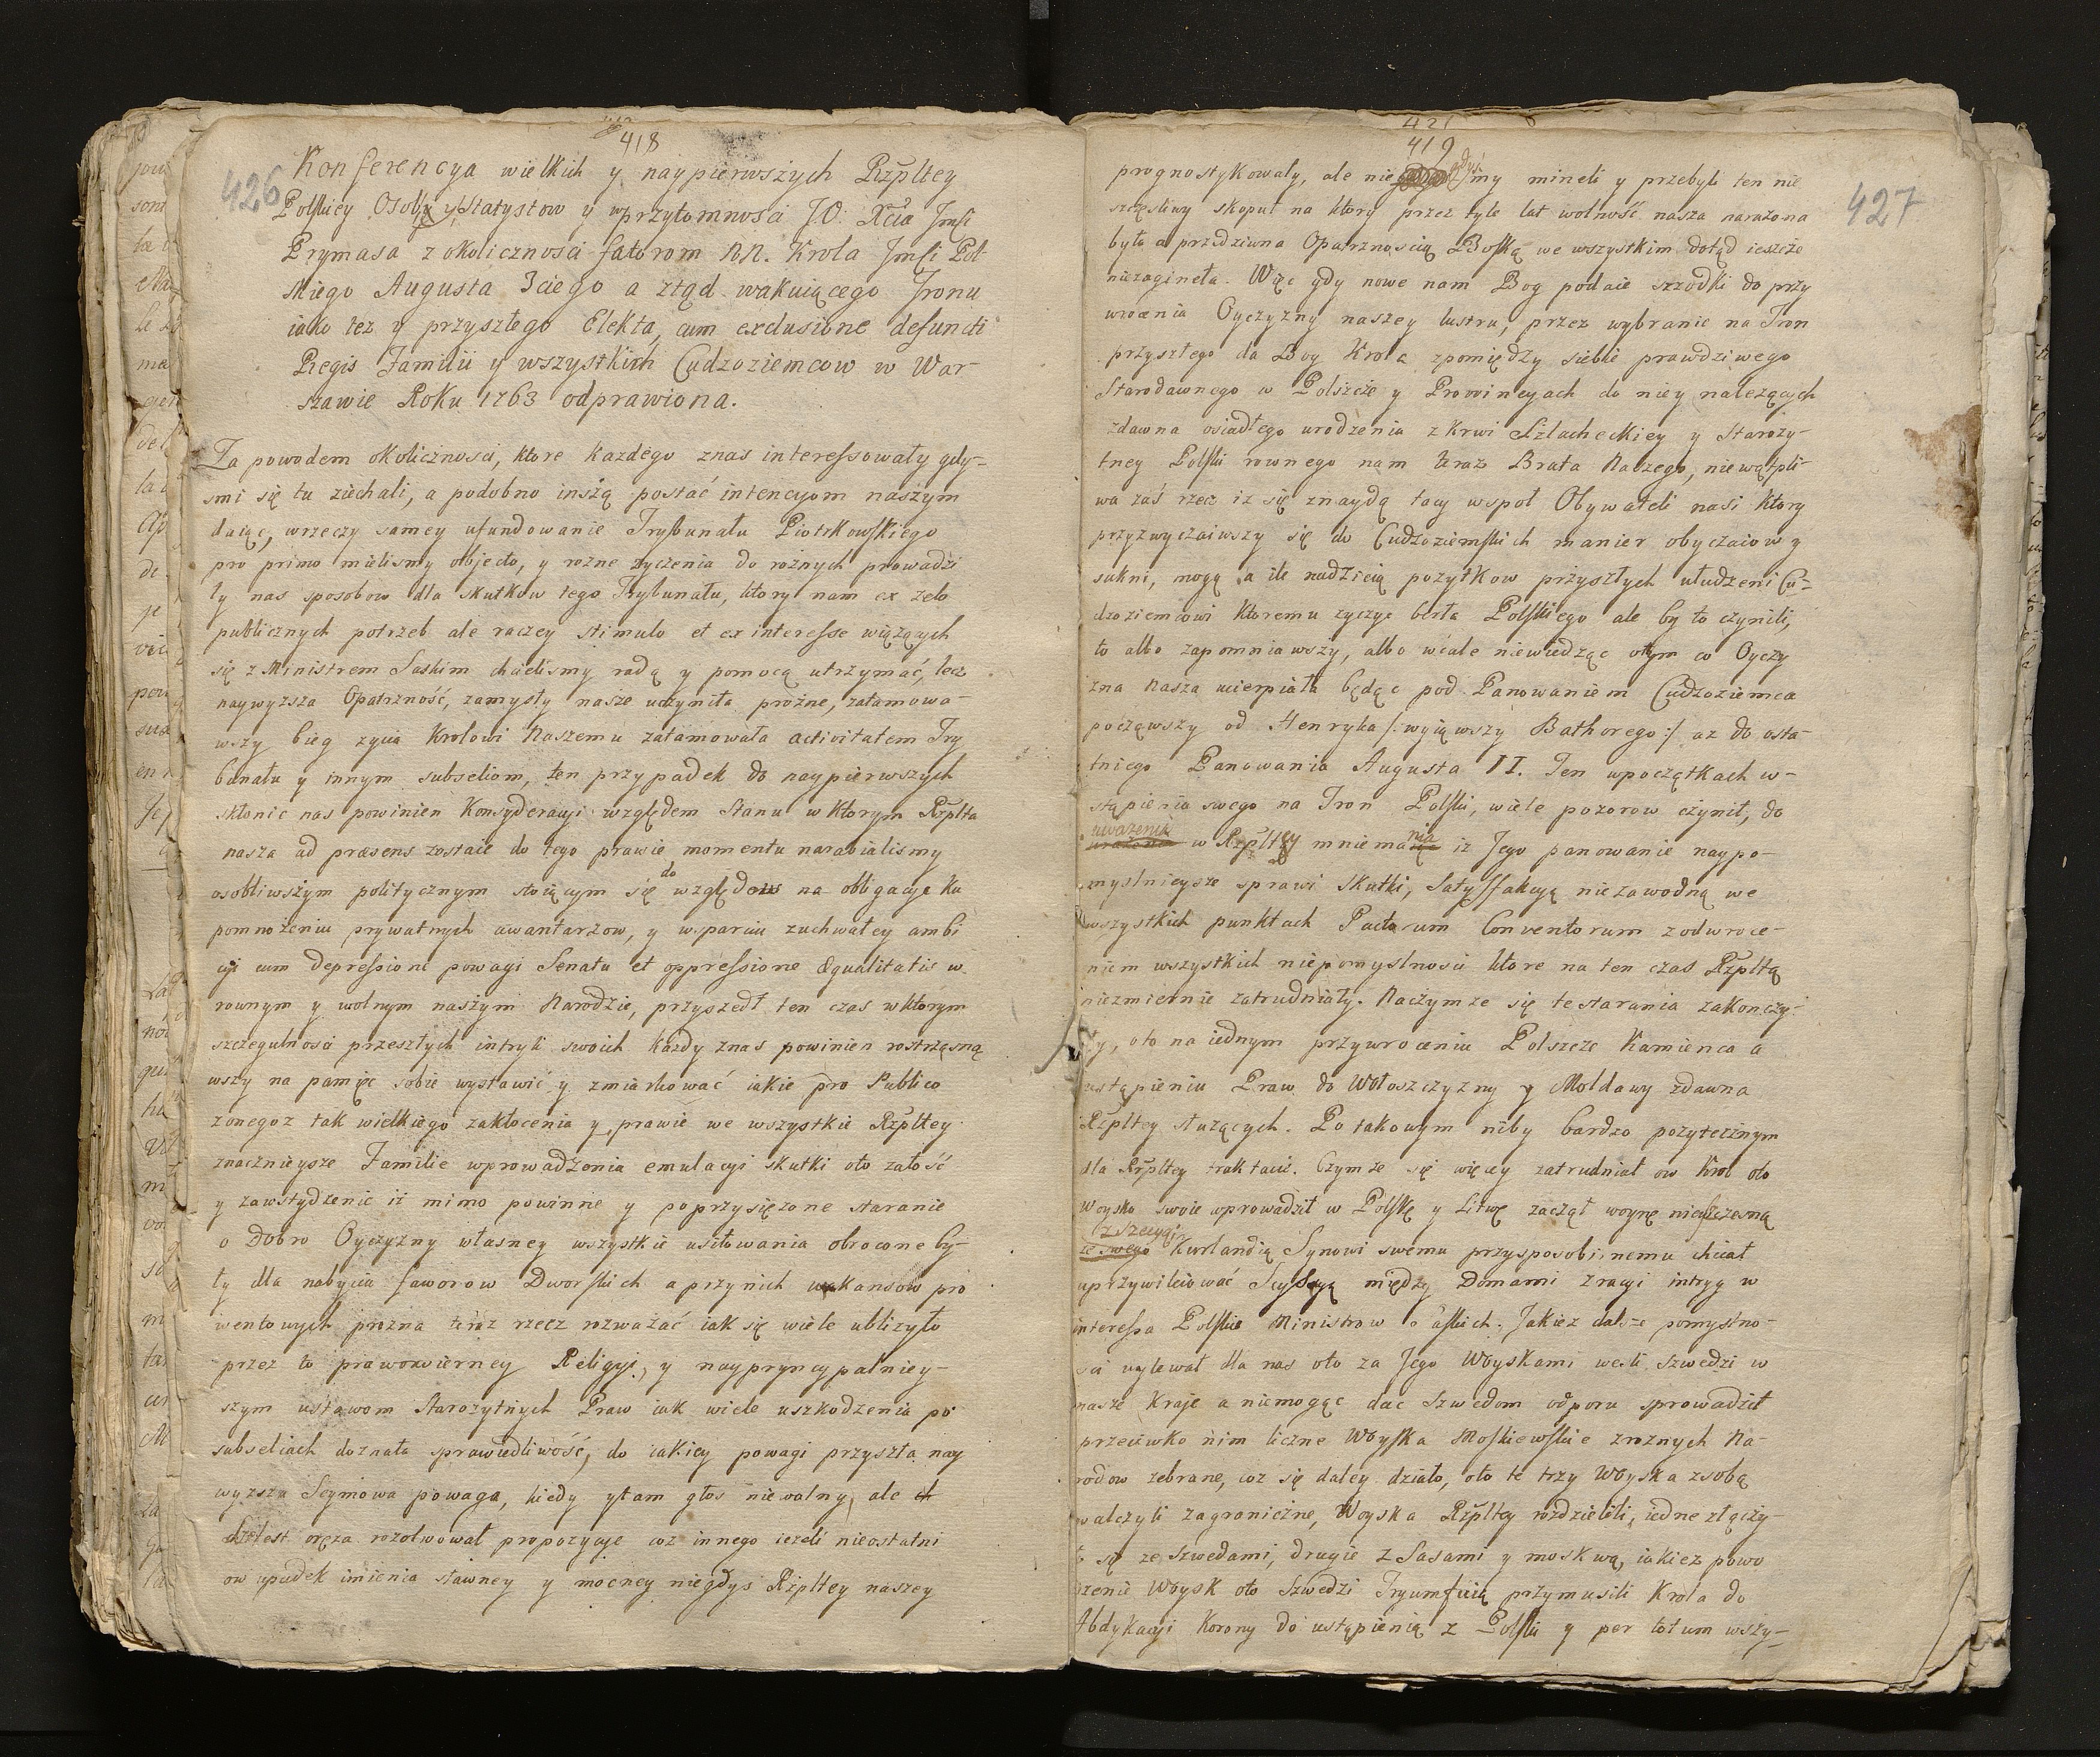 418
426
Konferencya wielkich y naypierwszych Rzpltey
Polskiey Osoby y Statystow y wprzytomnosci JO. Xcia Jmsi
Prymasa z okolicznosci fatorom NN. Krola Jmsi Pol
skiego Augusta 3ciego a ztąd wakuiącego Tronu
iako tez y przyszłego Elekta, cum exclusione defuncti
Regis Familii y wszystkich Cudzoziemcow w War-
szawie Roku 1763 odprawiona.
Za powodem okolicznosci, ktore kazdego znas interessowały gdy-
smi się tu ziechali, a podobno inszą postać intencyom naszym
daiąc, wrzeczy samey ufundowanie Trybunału Piotrkowskiego
pro primo mielismy objecto, y rozne zyczenia do roznych prowadzi
ły nas sposobow dla skutkow tego Trybunału, ktory nam ex zelo
publicznych potrzeb ale raczey stimulo et ex interesse wiążących
się z Ministrem Saskim chcielismy radą y pomocą utrzymać, lecz
naywyzsza Opatrzność, zamysły nasze uczyniła prożne, zatamowa-
wszy bieg zycia Krolowi Naszemu zatamowała activitatem Try
bunału y innym subseliom, ten przypadek do naypierwszych
skłonic nas powinien Konsyderacyi względem Stanu w ktorym Rzplta
nasza ad præsens zostaie do tego prawie momentu narabialismy
osobliwszym politycznym stoiącym się do względow na obligacye ku
pomnożeniu prywatnych awantarzow, y wsparciu zuchwałey ambi
cyi cum depressione powagi Senatu et oppressione æqualitatis w
rownym y wolnym naszym Narodzie, przyszedł ten czas w ktorym
szczegulnosci przeszłych intryk swoich każdy znas powinien rostrząsną
wszy na pamięc sobie wystawić y zmiarkować iakie pro Publico
zonegoz tak wielkiego zakłocenia y prawie we wszystkie Rzpltey
znacznieysze Familie wprowadzenia emulacyi skutki oto załość
y zawstydzenie iż mimo powinne y poprzysięzone staranie
o dobro Oyczyzny własney wszystkie usiłowania obrocone by-
ły dla nabycia faworow Dworskich a przynich wakansow pro
wentowych prozna teraz rzecz rozważać iak się wiele ubliżyło
przez to prawowierney Religyi, y naypryncypalniey-
szym ustawom Starozytnych Praw iak wiele uszkodzenia po
subseliach doznała sprawiedliwość, do iakiey powagi przyszła nay
wyzsza Seymowa powaga, kiedy ytam głos niewolny, ale
szelest oręza rozolwował propozycye coz innego iezeli nieostatni
ow upadek imienia sławney y mocney niegdys Rzpltey naszey
421
419
427
prognostykowały, ale nie gdyśmy mineli y przebyli ten nie
szczęsliwy skopuł na ktory przez tyle lat wolność nasza narażona
była a przedziwna Opatrznoscią Boską we wszystkim dotąd ieszcze
niezagineła. Więc gdy nowe nam Bog podaie srzodki do przy
wrocenia Oyczyzny naszey lustru, przez wybranie na Tron
przyszłego da Bog Krola zpomiędzy siebie prawdziwego
Starodawnego w Polszcze y Prowincyach do niey nalezących
zdawna osiadłego urodzenia z krwi Szlacheckiey y Starozy-
tney Polski rownego nam teraz Brata Naszego, niewątpli-
wa zaś rzecz iz się znaydą tacy wspoł Obywateli nasi ktory
przyzwyczaiwszy się do Cudzoziemskich manier obyczaiow y
sukni, mogą a ile nadzieią pozytkow przyszłych ułudzeni Cu-
dzoziemcowi ktoremu zyczyc berła Polskiego ale by to czynili,
to albo zapomniawszy, albo wcale niewiedząc otym co Oyczy
zna nasza ucierpiała będąc pod Panowaniem Cudzoziemca
począwszy od Henryka /: wyiąwszy Bathorego :/ az do osta-
tniego Panowania Augusta II. Ten wpoczątkach w-
stąpienia swego na Tron Polski, wiele pozorow czynił, do
uwazenia w Rzpltey mniemania iz Jego panowanie naypo-
myslnieysze sprawi skutki, Satysfakcyą niezawodną we
wszystkich punktach Pactorum Conventorum zodwroce-
niem wszystkich niepomyslnosci ktore na ten czas Rzpltą
niezmiernie zatrudniały. Naczymze się te starania zakonczy-
ły, oto na iednym przywroceniu Polszcze Kamienca a
ustąpieniu Praw do Wołoszczyzny y Mołdawy zdawna
Rzpltey służących. Po takowym niby bardzo pozytecznym
dla Rzpltey traktacie. Czymze się więcey zatrudniał ow Krol oto
Woyska swoie wprowadził w Polskę y Litwę zaczął woynę nieszczesną
z Szwecyą Kurlandią Synowi swemu przysposobionemu chciał
uprzywileiować Scyssyą między Domami zracyi intryg w
interessa Polskie Ministrow Saskich. Jakiez dalsze pomyslno-
sci wylewał dla nas oto za Jego Woyskami weszli Szwedzi w
nasze Kraje a niemogąc dac Szwedom odporu sprowadził
przeciwko nim liczne Woyska Moskiewskie zroznych Na-
rodow zebrane, coz się daley działo, oto te trzy Woyska zsobą
walczyli zagraniczne, Woyska Rzpltey rozdzielili, iedne złączy-
ły się ze Szwedami, drugie z Sasami y moskwą, iakiez powo
dzenie Woysk oto Szwedzi Tryumfuią przymusili Krola do
Abdykacyi Korony do ustąpienią z Polski y per totum wszy-